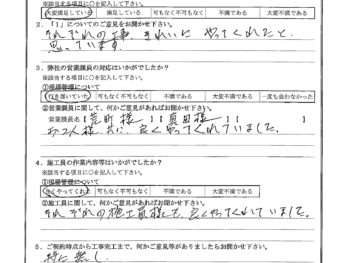 ※該当する項目に○を記入して下さい。
大変満足している 満足している 可もなく不可もなく 不満である 大変不満である
2．「1」についてのご意見をお聞かせ下さい。
それぞれの工事、きれいに やってくれたと
思っています。
3．弊社の営業職員の対応はいかがでしたか？
※該当する項目に○を記入して下さい。
①現場管理について
行き届いていた 可もなく不可もなく 不満である 大変不満である 一度も会わなかった
②営業職員に関して、何かご意見があればお聞かせ下さい。
営業職員名【荒町 様 】【真田 様 】【 】
お二人様 共に 良くやってくれていました。
4．施工員の作業内容等はいかがでしたか？
※該当する項目に○を記入して下さい。
①現場管理について
良くやってくれた 可もなく不可もなく 不満である 大変不満である
②施工員に関して、何かご意見があればお聞かせ下さい。
それぞれの施工員様も 良くやってくれていました。
5．ご契約時点から工事完工まで、何かご意見等がありましたらお聞かせ下さい。
特に無し。